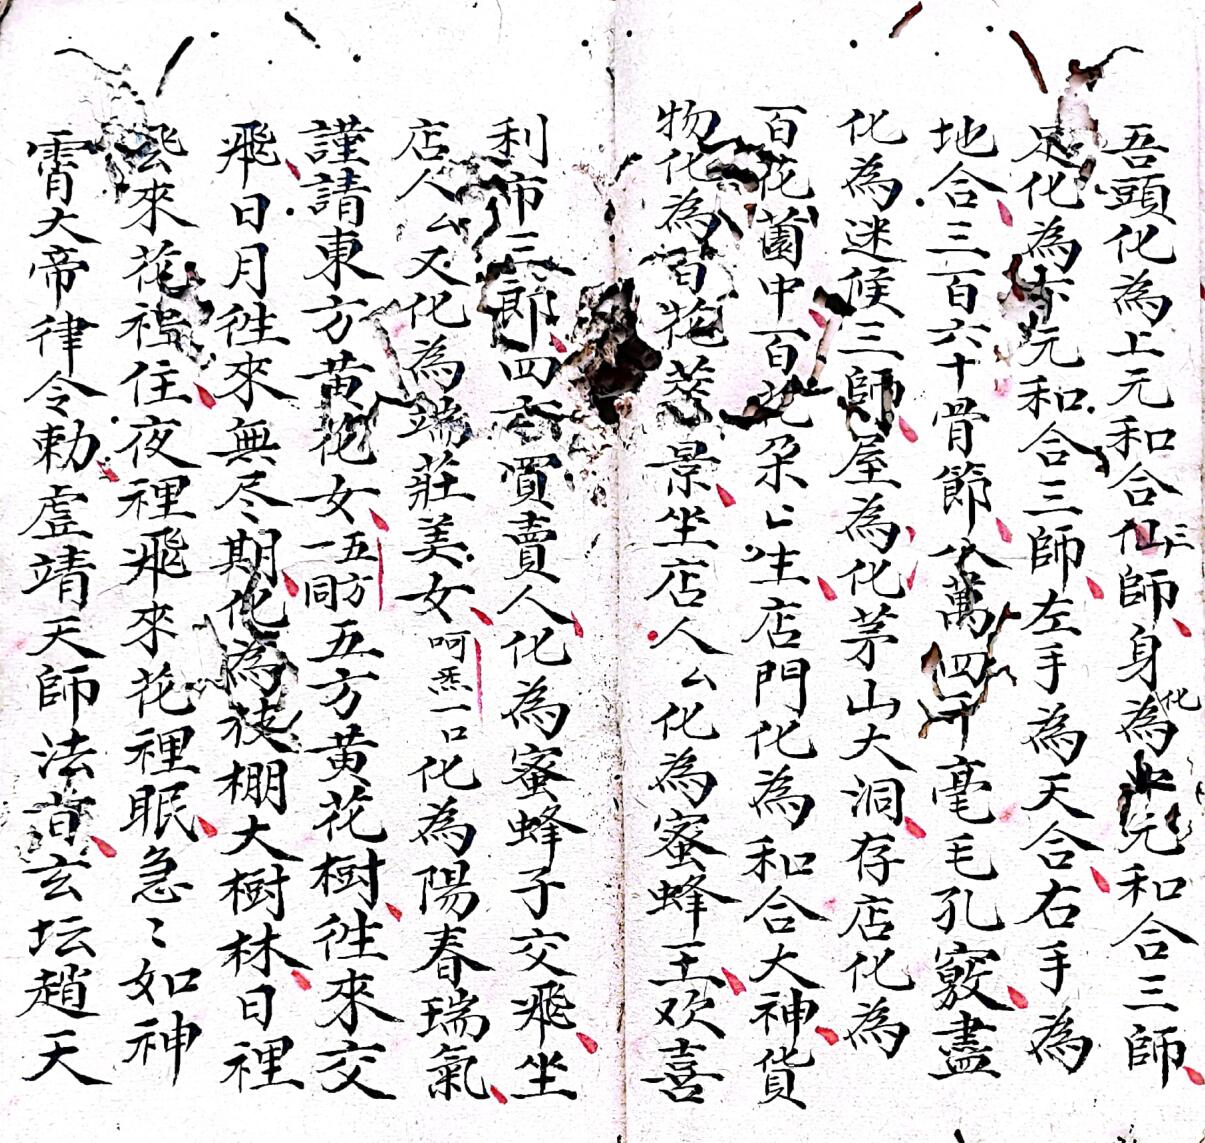 吾頭化為上元和合仙三師身為化中元和合三師
足化為下元和合三師左手為天合右手為
地合三百六十骨節八萬四千毫毛孔竅盡
化為迷候三師屋為化茅山大洞存店化為
百花園中百花朵〻生店門化為和合大神貨
物化為百花蕊景坐店人厶化為蜜蜂王欢喜
利市三郎四六買賣人化為蜜蜂子交飛坐
店人厶又化為端莊美女呵炁一口化為陽春瑞氣
謹請東方黄花女五方一同五方黄花樹徃來交
飛日月徃來無尽期化為枝棚大樹林日裡
飛來花裡住夜裡飛來花裡眠急〻如神
霄大帝律令勅虛靖天師法旨玄坛趙天